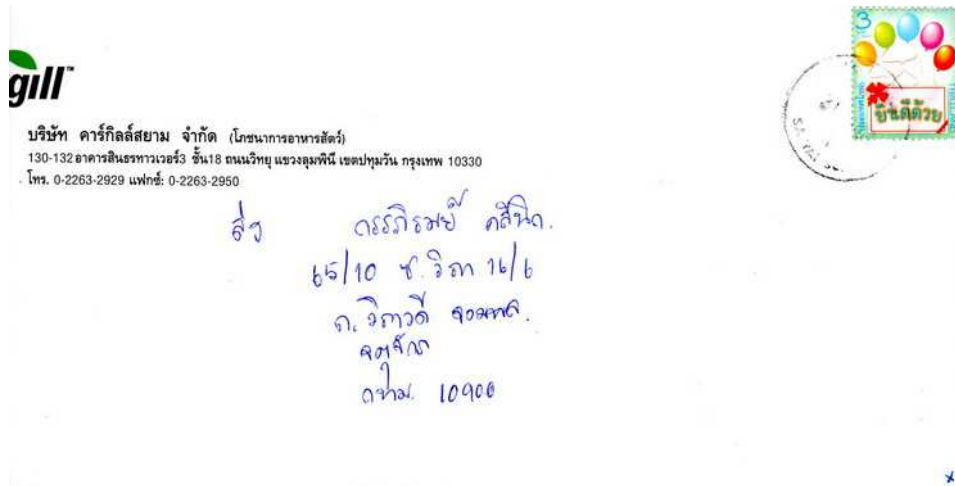 gill™
บริษัท คาร์กิลล์สยาม จำกัด (โภชนาการอาหารสัตว์)
130-132 อาคารสินธรทาวเวอร์3 ชั้น18 ถนนวิทยุ แขวงลุมพินี เขตปทุมวัน กรุงเทพ 10330
โทร. 0-2263-2929 แฟกซ์: 0-2263-2950
3
ยินดีด้วย
ส่ง กรรภิรมย์ คลีนิก.
65/10 ซ. วิภา 16/6
ถ. วิภาวดี จอมพล.
จตุจักร
กทม. 10900